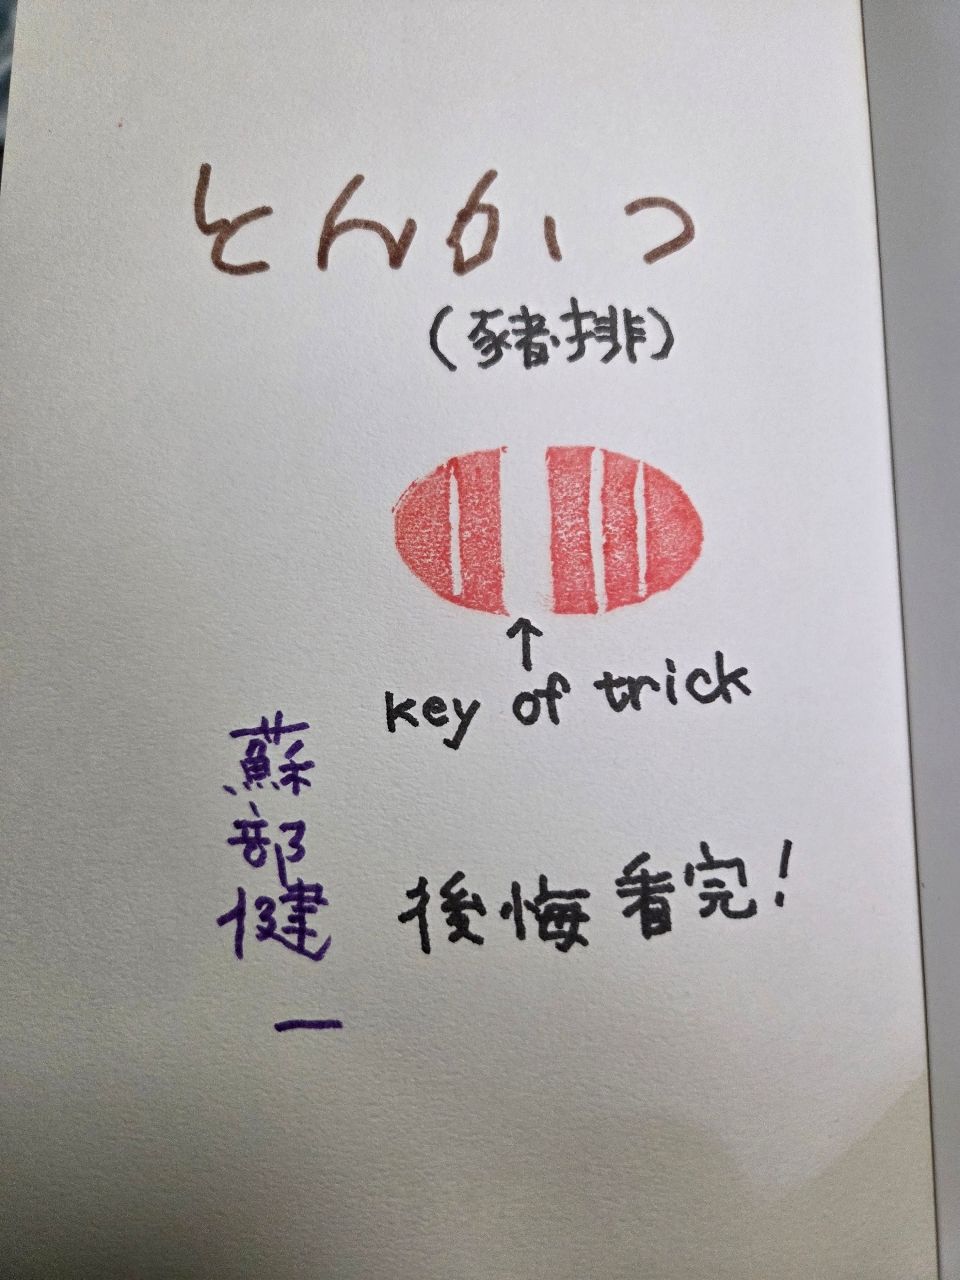 とんかつ
(豬排)
↑
key of trick
蘇部健一
後悔看完!